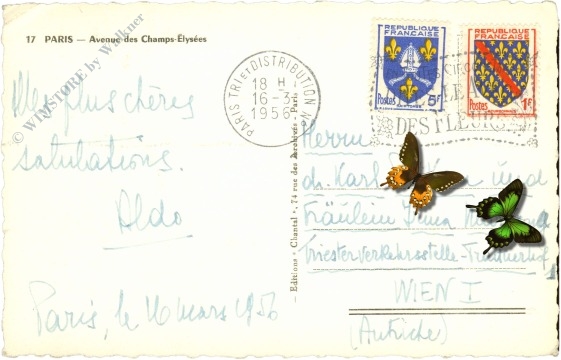 17 PARIS — Avenue des Champs-Élysées
© WIMSTORE by Wallner
Mes plus chères
salutations.
Aldo
Paris, le 16 mars 1956
PARIS TRI et DISTRIBUTION N°
18 H
16-3
1956
REPUBLIQUE
FRANÇAISE
Postes 5F
REPUBLIQUE
FRANÇAISE
Postes 1F
LE
DES FLEURS
Editions "Chantal", 74 rue des Archives - Paris
Herrn
dr. Karl und
Fräulein
Triesterverkehrsstelle-
WIEN I
(Autriche)